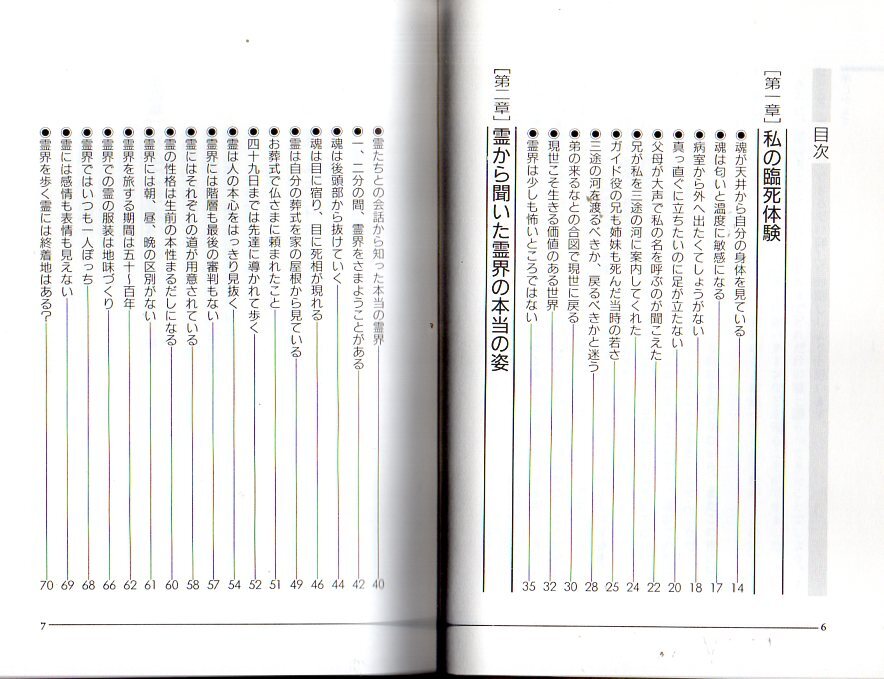 目次
[第一章]私の臨死体験
●魂が天井から自分の身体を見ている 14
●魂は匂いと温度に敏感になる 17
●病室から外へ出たくてしょうがない 18
●真っ直ぐに立ちたいのに足が立たない 20
●父母が大声で私の名を呼ぶのが聞こえた 22
●兄が私を三途の河に案内してくれた 24
●ガイド役の兄も姉妹も死んだ当時の若さ 25
●三途の河を渡るべきか、戻るべきかと迷う 28
●弟の来るなとの合図で現世に戻る 30
●現世こそ生きる価値のある世界 32
●霊界は少しも怖いところではない 35
[第二章]霊から聞いた霊界の本当の姿
6
●霊たちとの会話から知った本当の霊界 40
●一、二分の間、霊界をさまようことがある 42
●魂は後頭部から抜けていく 44
●魂は目に宿り、目に死相が現れる 46
●霊は自分の葬式を家の屋根から見ている 49
●お葬式で仏さまに頼まれたこと 51
●四十九日までは先達に導かれて歩く 52
●霊は人の本心をはっきり見抜く 54
●霊界には階層も最後の審判もない 57
●霊にはそれぞれの道が用意されている 58
●霊の性格は生前の本性まるだしになる 60
●霊界には朝、昼、晩の区別がない 61
●霊界を旅する期間は五十〜百年 62
●霊界での霊の服装は地味づくり 66
●霊界ではいつも一人ぼっち 68
●霊には感情も表情も見えない 69
●霊界を歩く霊には終着地はある? 70
7